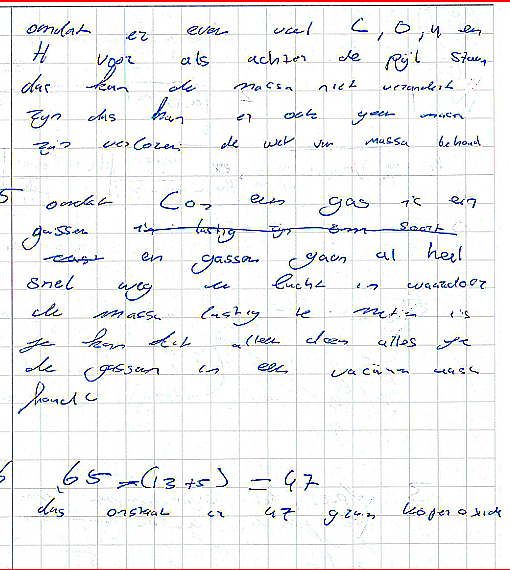 omdat er even veel C, O, H en
H voor als achter de pijl staan
dus kan de massa niet verandert
zijn dus kan er ook geen massa
zijn verloren de wet van massa behoud
5 omdat Co2 een gas is en
gassen
en gassen gaan al heel
snel weg de lucht in waardoor
de massa lastig te meten is
je kan dit alleen doen alles je
de gassen in een vacüum
6 65 - (13 + 5) = 47
dus onstaat er 47 gram koperoxide